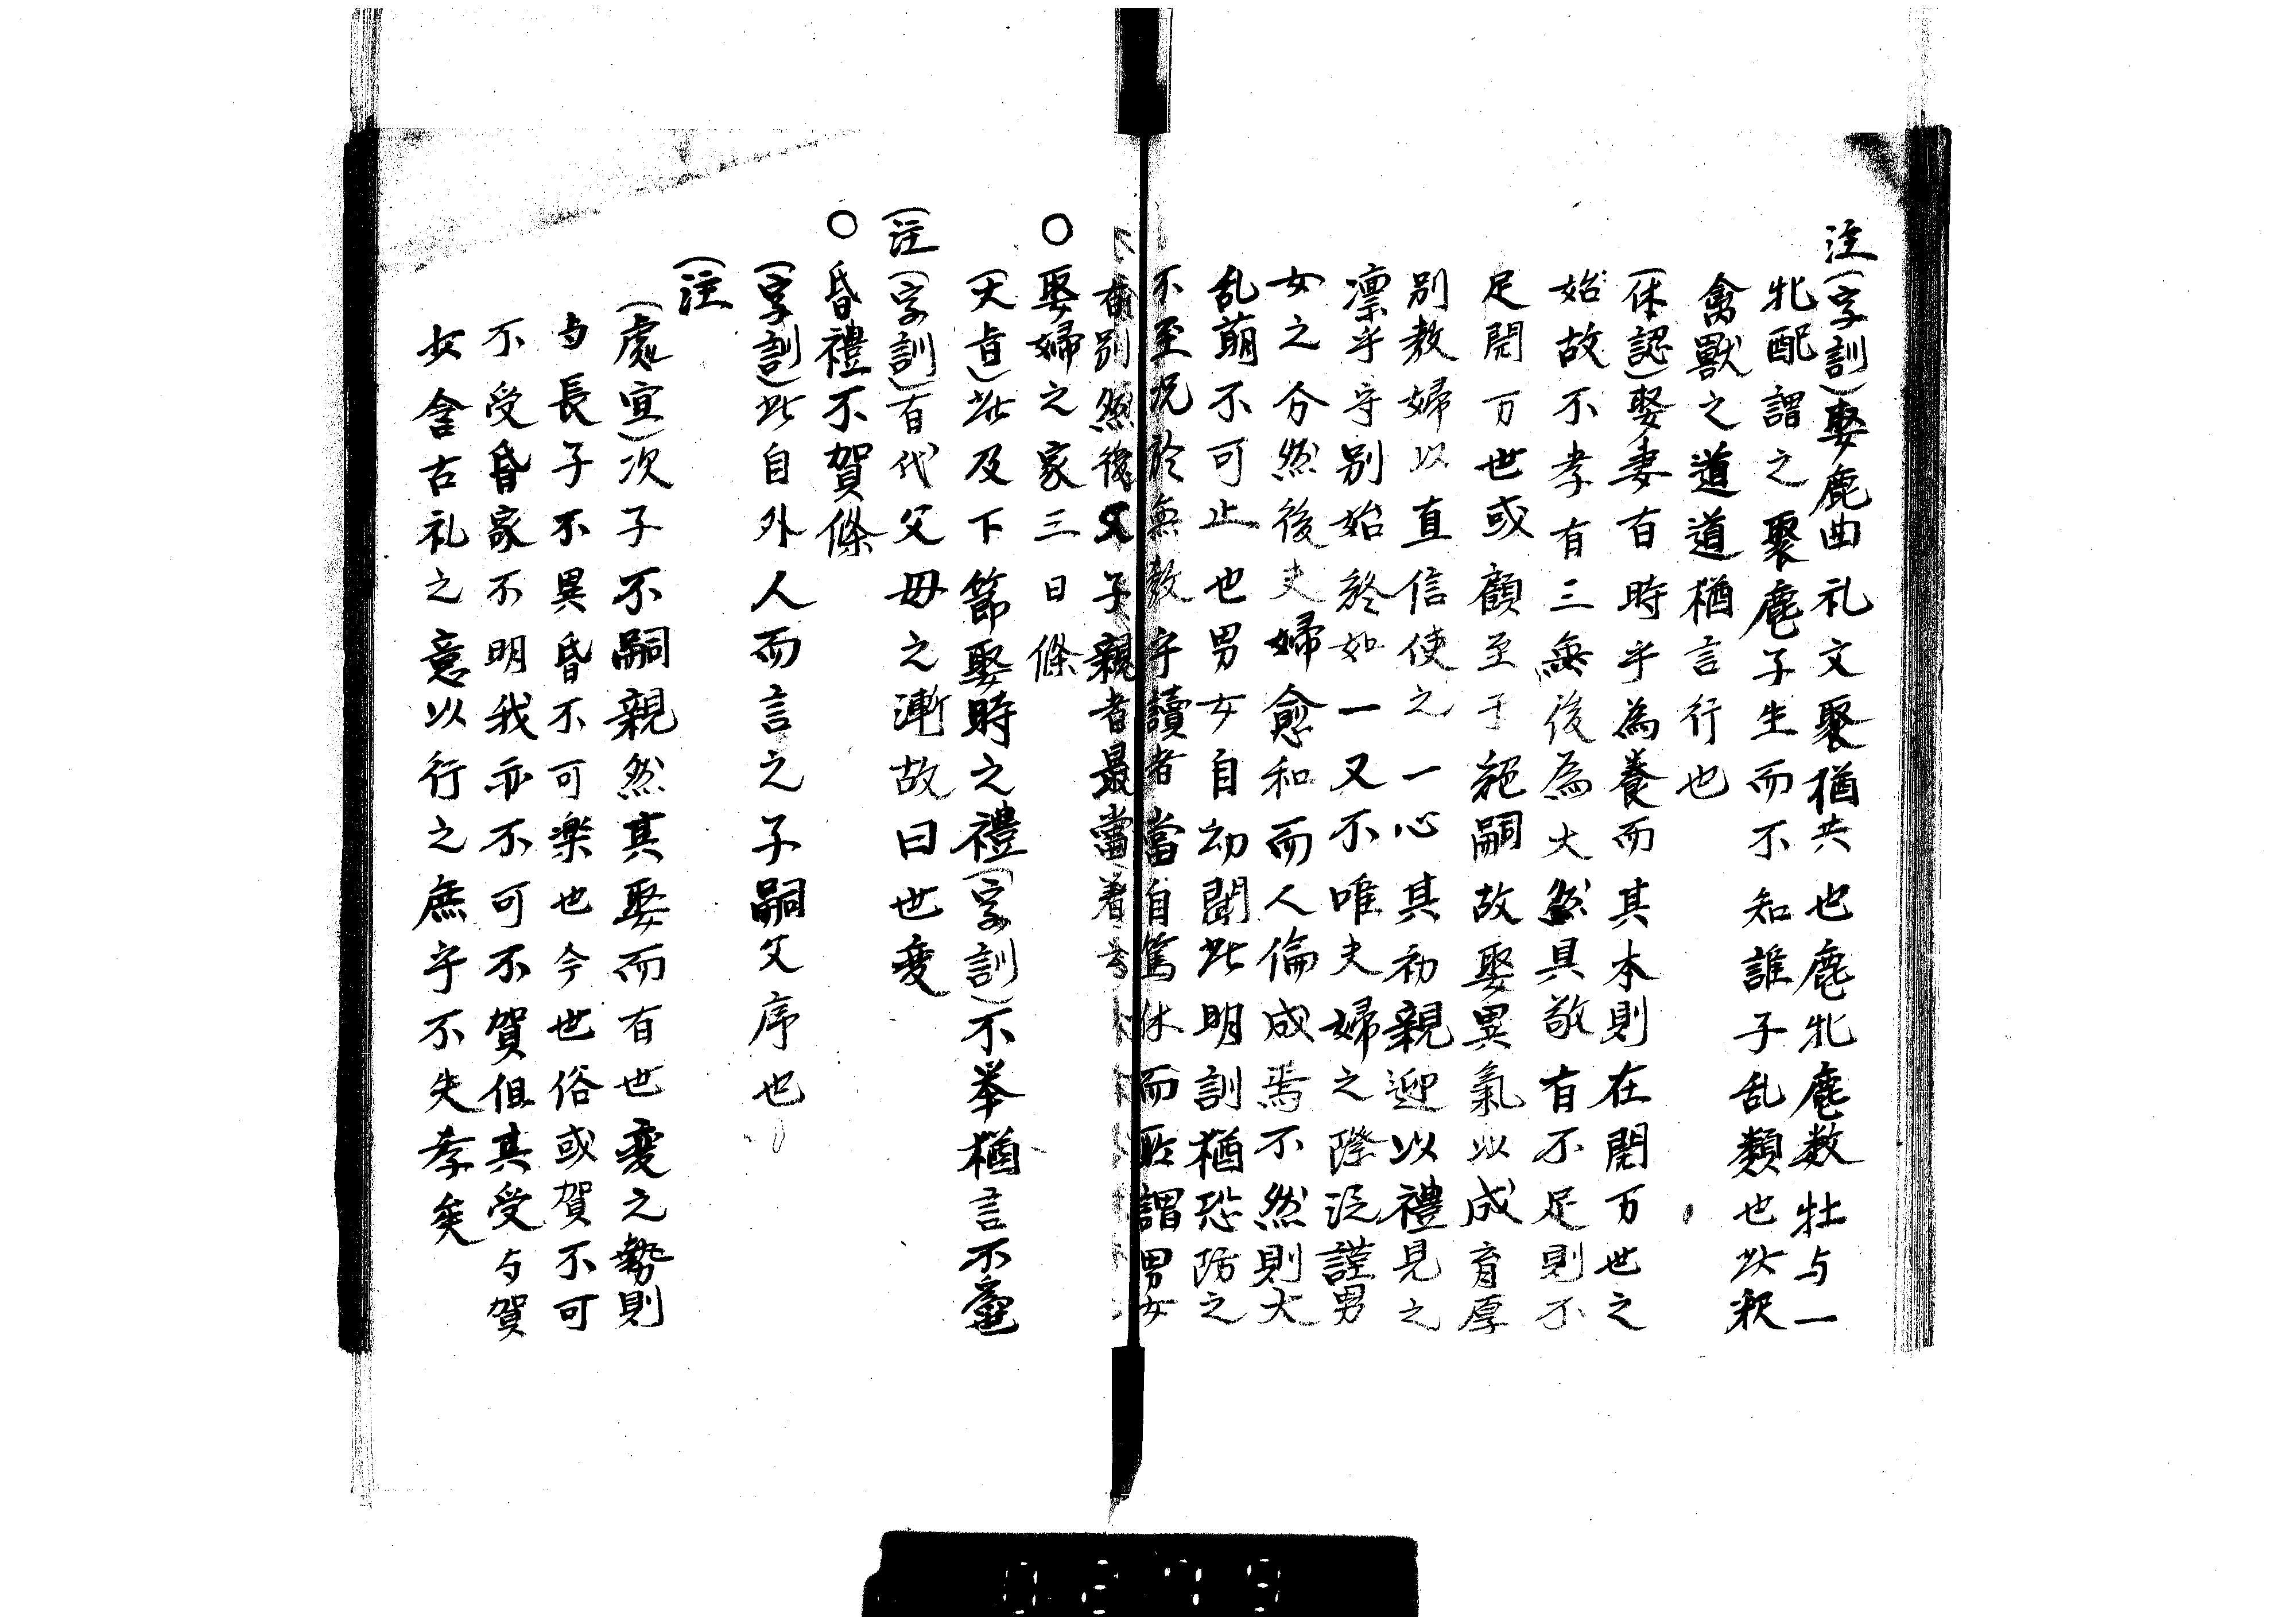 注(字訓)娶麀曲礼文聚猶共也麀牝鹿数牡与一
牝配謂之聚麀子生而不知誰子乱類也此釈
禽獣之道道猶言行也
(体認)娶妻有時乎為養而其本則在開万世之
始故不孝有三無後為大然具敬有不足則不
足開万世或顧至于絶嗣故娶異氣以成育厚
別教婦以直信使之一心其初親迎以禮見之
凛乎守別始終如一又不唯夫婦之際泛謹男
女之分然後夫婦愈和而人倫成焉不然則大
乱萌不可止也男女自幼聞此明訓猶恐防之
不至况於無教乎讀者當自篤体而所謂男女
有別然後父子親者最當着
○娶婦之家三日條
(大旨)此及下節娶時之禮(字訓)不挙猶言不
(注(字訓)有代父母之漸故曰世変
○昏禮不賀條
(字訓)此自外人而言之子嗣父序也
(注
(處宜)次子不嗣親然其娶而有世変之勢則
与長子不異昏不可楽也今世俗或賀不可
不受昏家不明我亦不可不賀但其受与賀
女含古礼之意以行之庶乎不失孝矣